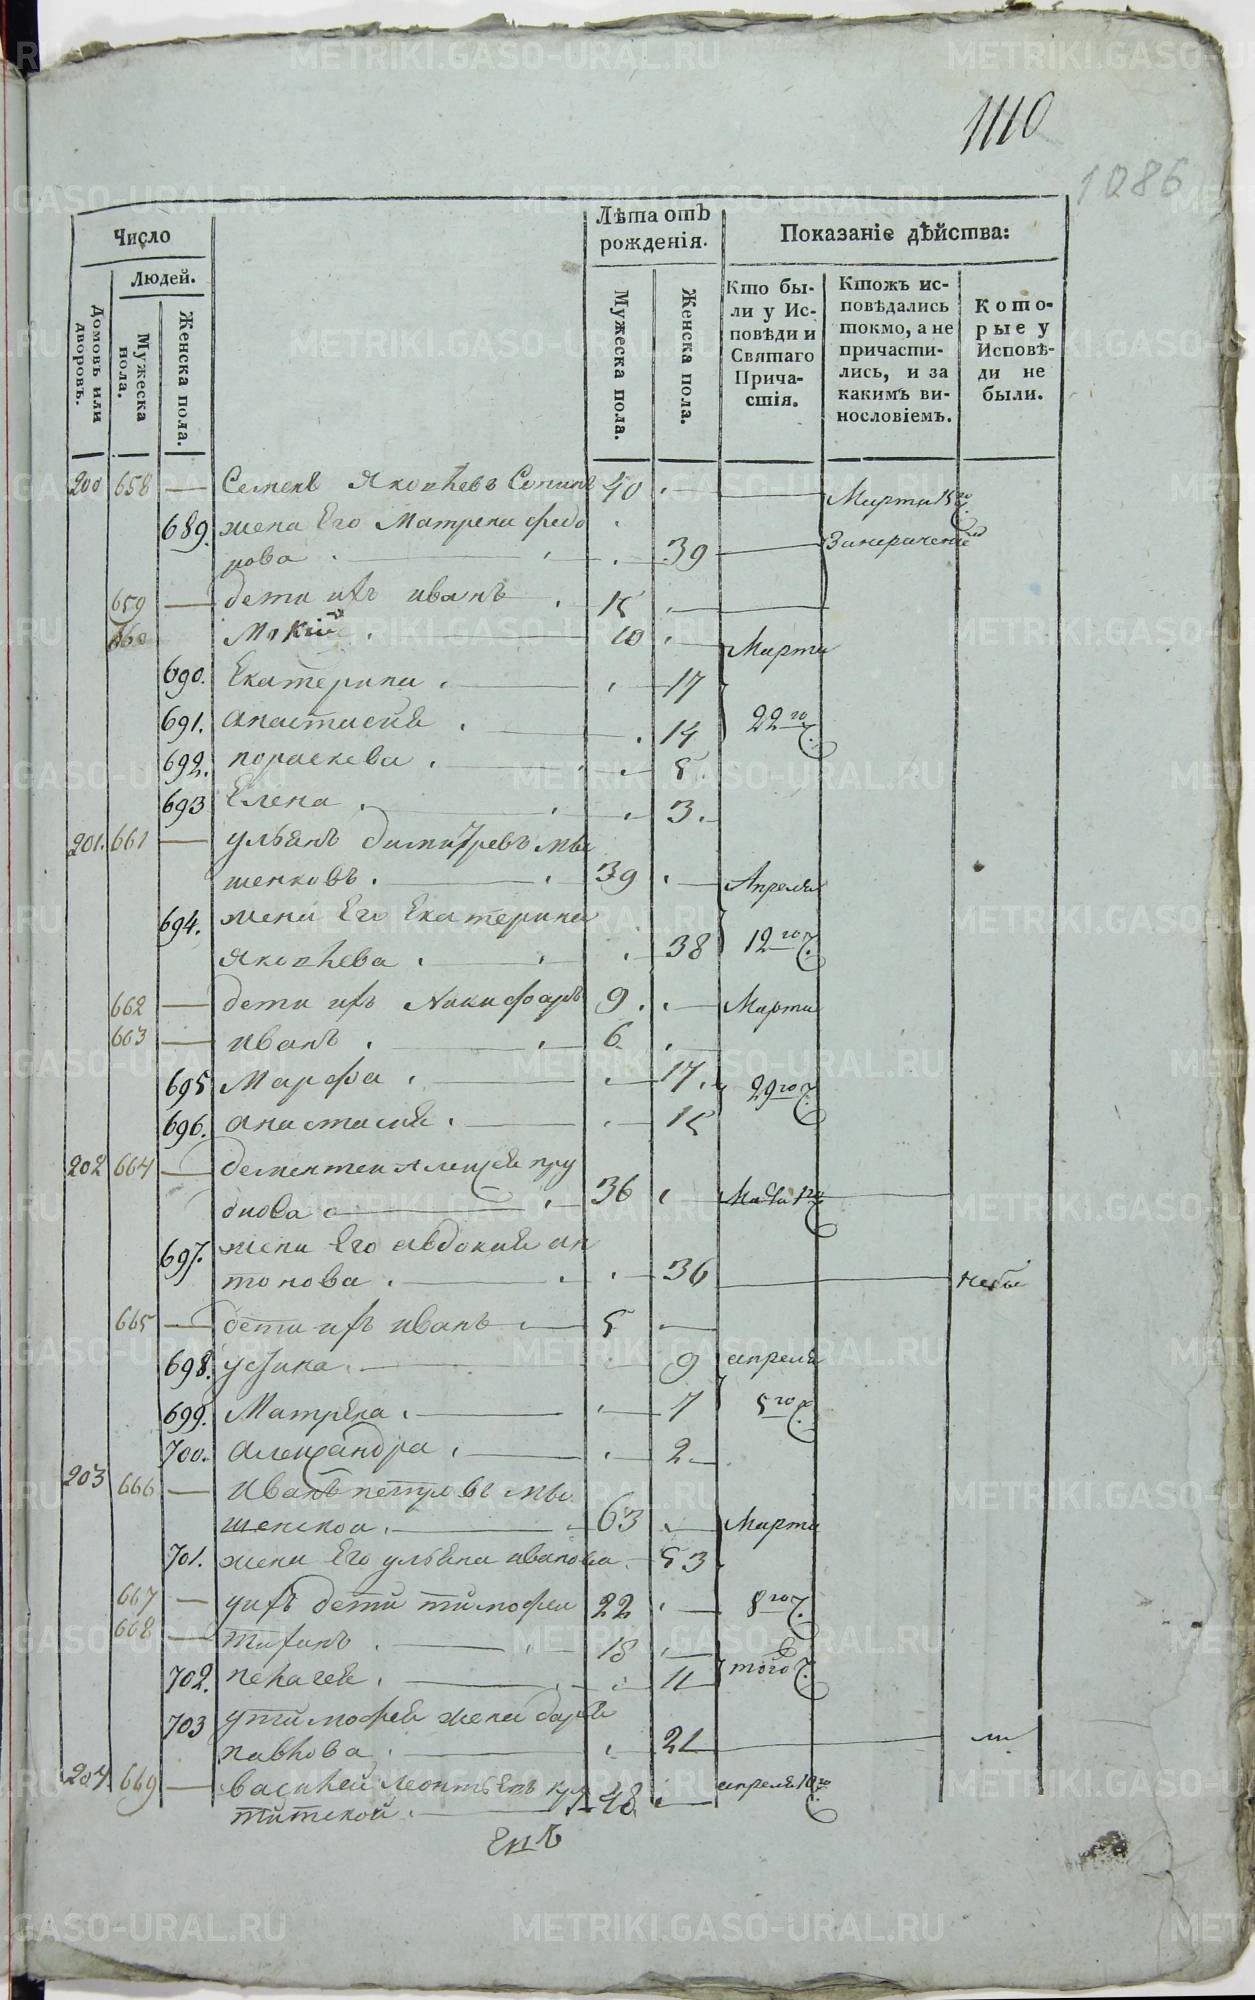 1110
1086
Число
Людей.
Домовъ или дворовъ.
Мужеска пола.
Женска пола.
Лѣта отъ рожденія.
Мужеска пола.
Женска пола.
Показаніе дѣйства:
Кто были у Исповѣди и Святаго Причастія.
Ктожъ исповѣдались токмо, а не причастились, и за какимъ винословіемъ.
Которые у Исповѣди не были.
200 658 — Семенъ Яковлевъ 40 Марта 15го
689. жена Его Матрена федо
рова 39
659 — дети ихъ иванъ 15
660 Мокій 10 Марта
690. Екатерина 17
691. анастасия 14 22го ч.
692.пораскева 5
693 Елена 3
201. 661 — ульянъ димитревъ мы
шенковъ 39 Апреля
694. жена Его Екатерина
яковлева 38 12го ч.
662 — дети ихъ Никифоръ 9 Марта
663 — иванъ 6
695 Марфа 17 29го ч.
696. анастасия 15
202 664 — дементеи алексеи пру
36 1го
697. жена Его авдокия ан
тонова 36 небы
665 — дети ихъ иванъ 5
698. устина 9 апреля
699. Матрена 7 5го ч.
700. александра 2
203 666 — Иванъ мы
шенской 63 Марта
701. жена Его ульяна иванова 53
667 — уихъ дети тимофеи 22 8го ч.
668 — тиханъ 18
702. пелагея 11 того ч.
703 утимофея жена дарья
павлова 21
204. 669 — василей леонтьевъ
48 апреля 10го
METRIKI.GASO-URAL.RU